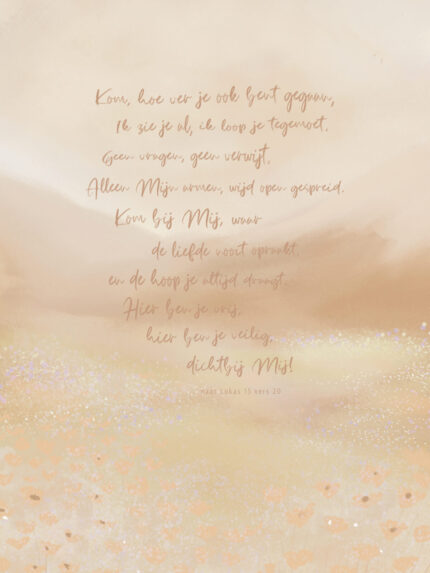 Kom, hoe ver je ook bent gegaan,
Ik zie je al, ik loop je tegemoet.
Geen vragen, geen verwijt,
Alleen Mijn armen, wijd open gespreid.
Kom bij Mij, waar
de liefde nooit opraakt,
en de hoop je altijd draagt.
Hier ben je vrij,
hier ben je veilig,
dichtbij Mij!
naar Lukas 15 vers 20